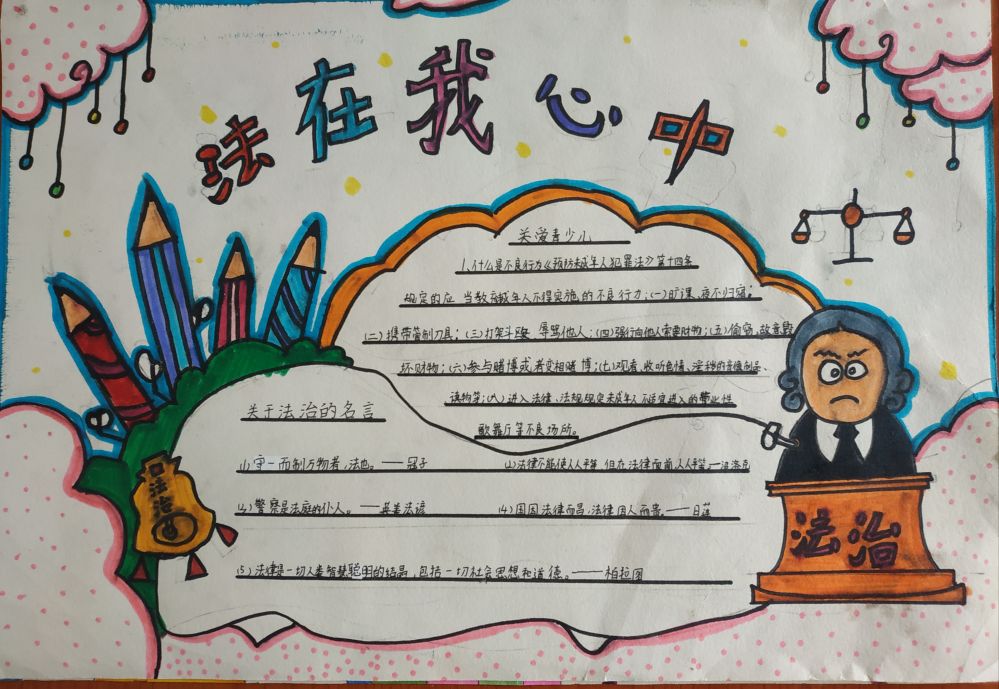 法在我心中
关爱青少儿
1、什么是不良行为《预防未成年人犯罪法》第十四条
规定的应当教育未成年人不得实施的不良行为:(一)旷课、夜不归宿;
(二)携带管制刀具;(三)打架斗殴、辱骂他人;(四)强行向他人索要财物;(五)偷窃、故意毁
坏财物;(六)参与赌博或者变相赌博;(七)观看、收听色情、淫秽的音像制品、
读物等;(八)进入法律、法规规定未成年人不适宜进入的营业性
歌舞厅等不良场所。
关于法治的名言
(1)守一而制万物者,法也。——冠子
(2)法律不能使人人平等,但在法律面前人人平等——波洛克
(3)警察是法庭的仆人。——英美法谚
(4)国因法律而昌,法律因人而贵。——日莲
(5)法律是一切人类智慧聪明的结晶,包括一切社会思想和道德。——柏拉图
法治
法治